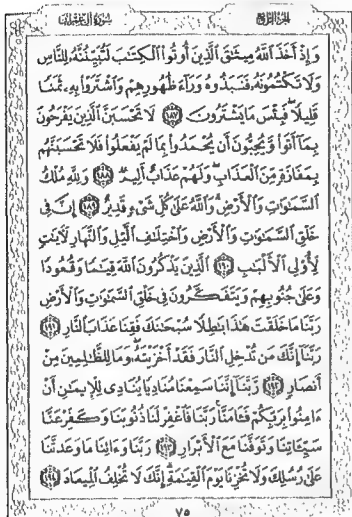 الجزء الرابع سورة آل عمران
وَإِذْ أَخَذَ ٱللَّهُ مِيثَٰقَ ٱلَّذِينَ أُوتُوا۟ ٱلْكِتَٰبَ لَتُبَيِّنُنَّهُۥ لِلنَّاسِ
وَلَا تَكْتُمُونَهُۥ فَنَبَذُوهُ وَرَآءَ ظُهُورِهِمْ وَٱشْتَرَوْا۟ بِهِۦ ثَمَنًا
قَلِيلًا ۖ فَبِئْسَ مَا يَشْتَرُونَ ١٨٧ لَا تَحْسَبَنَّ ٱلَّذِينَ يَفْرَحُونَ
بِمَآ أَتَوا۟ وَّيُحِبُّونَ أَن يُحْمَدُوا۟ بِمَا لَمْ يَفْعَلُوا۟ فَلَا تَحْسَبَنَّهُم
بِمَفَازَةٍ مِّنَ ٱلْعَذَابِ ۖ وَلَهُمْ عَذَابٌ أَلِيمٌ ١٨٨ وَلِلَّهِ مُلْكُ
ٱلسَّمَٰوَٰتِ وَٱلْأَرْضِ ۗ وَٱللَّهُ عَلَىٰ كُلِّ شَىْءٍ قَدِيرٌ ١٨٩ إِنَّ فِى
خَلْقِ ٱلسَّمَٰوَٰتِ وَٱلْأَرْضِ وَٱخْتِلَٰفِ ٱلَّيْلِ وَٱلنَّهَارِ لَءَايَٰتٍ
لِّأُو۟لِى ٱلْأَلْبَٰبِ ١٩٠ ٱلَّذِينَ يَذْكُرُونَ ٱللَّهَ قِيَٰمًا وَقُعُودًا
وَعَلَىٰ جُنُوبِهِمْ وَيَتَفَكَّرُونَ فِى خَلْقِ ٱلسَّمَٰوَٰتِ وَٱلْأَرْضِ
رَبَّنَا مَا خَلَقْتَ هَٰذَا بَٰطِلًا سُبْحَٰنَكَ فَقِنَا عَذَابَ ٱلنَّارِ ١٩١
رَبَّنَآ إِنَّكَ مَن تُدْخِلِ ٱلنَّارَ فَقَدْ أَخْزَيْتَهُۥ ۖ وَمَا لِلظَّٰلِمِينَ مِنْ
أَنصَارٍ ١٩٢ رَّبَّنَآ إِنَّنَا سَمِعْنَا مُنَادِيًا يُنَادِى لِلْإِيمَٰنِ أَنْ
ءَامِنُوا۟ بِرَبِّكُمْ فَـَٔامَنَّا ۚ رَبَّنَا فَٱغْفِرْ لَنَا ذُنُوبَنَا وَكَفِّرْ عَنَّا
سَيِّـَٔاتِنَا وَتَوَفَّنَا مَعَ ٱلْأَبْرَارِ ١٩٣ رَبَّنَا وَءَاتِنَا مَا وَعَدتَّنَا
عَلَىٰ رُسُلِكَ وَلَا تُخْزِنَا يَوْمَ ٱلْقِيَٰمَةِ ۗ إِنَّكَ لَا تُخْلِفُ ٱلْمِيعَادَ ١٩٤
٧٥